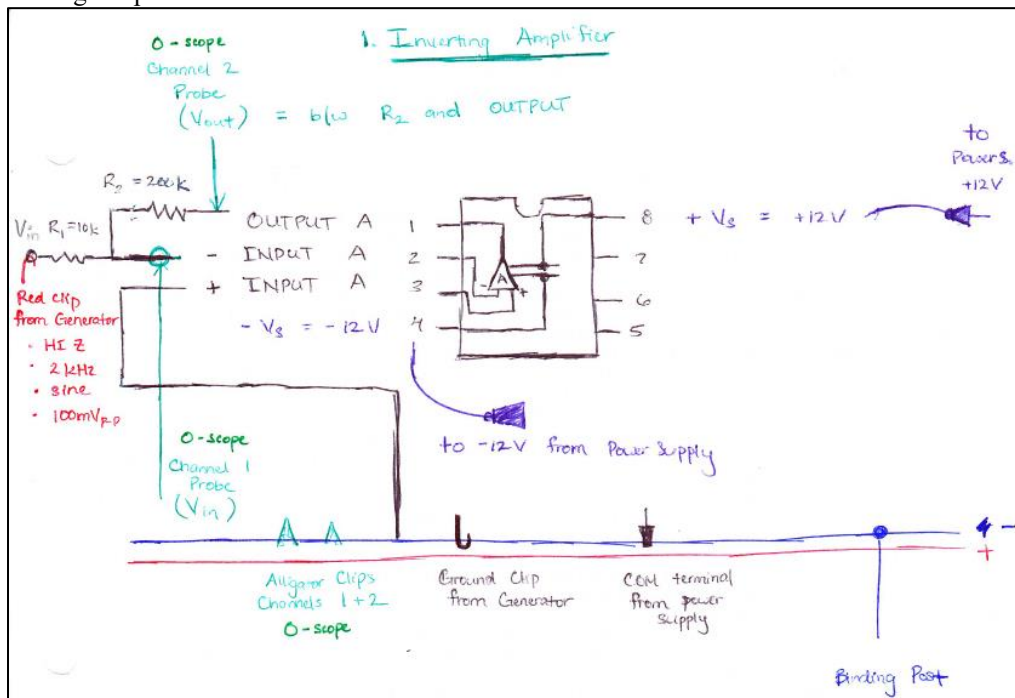 1. Inverting Amplifier
O-scope
Channel 2
Probe
(Vout) = b/w R2 and OUTPUT
to
Power S.
+12V
R2 = 200k
Vin R1=10k
OUTPUT A 1
- INPUT A 2
+ INPUT A 3
- Vs = -12V 4
A
-
+
8 + Vs = +12V
7
6
5
Red clip
from Generator
• HI Z
• 2 kHz
• sine
• 100mVpp
to -12V from Power Supply
O-scope
Channel 1
Probe
(Vin)
-
+
Alligator Clips
Channels 1+2
O-scope
Ground Clip
from Generator
COM terminal
from power
supply
Binding Post